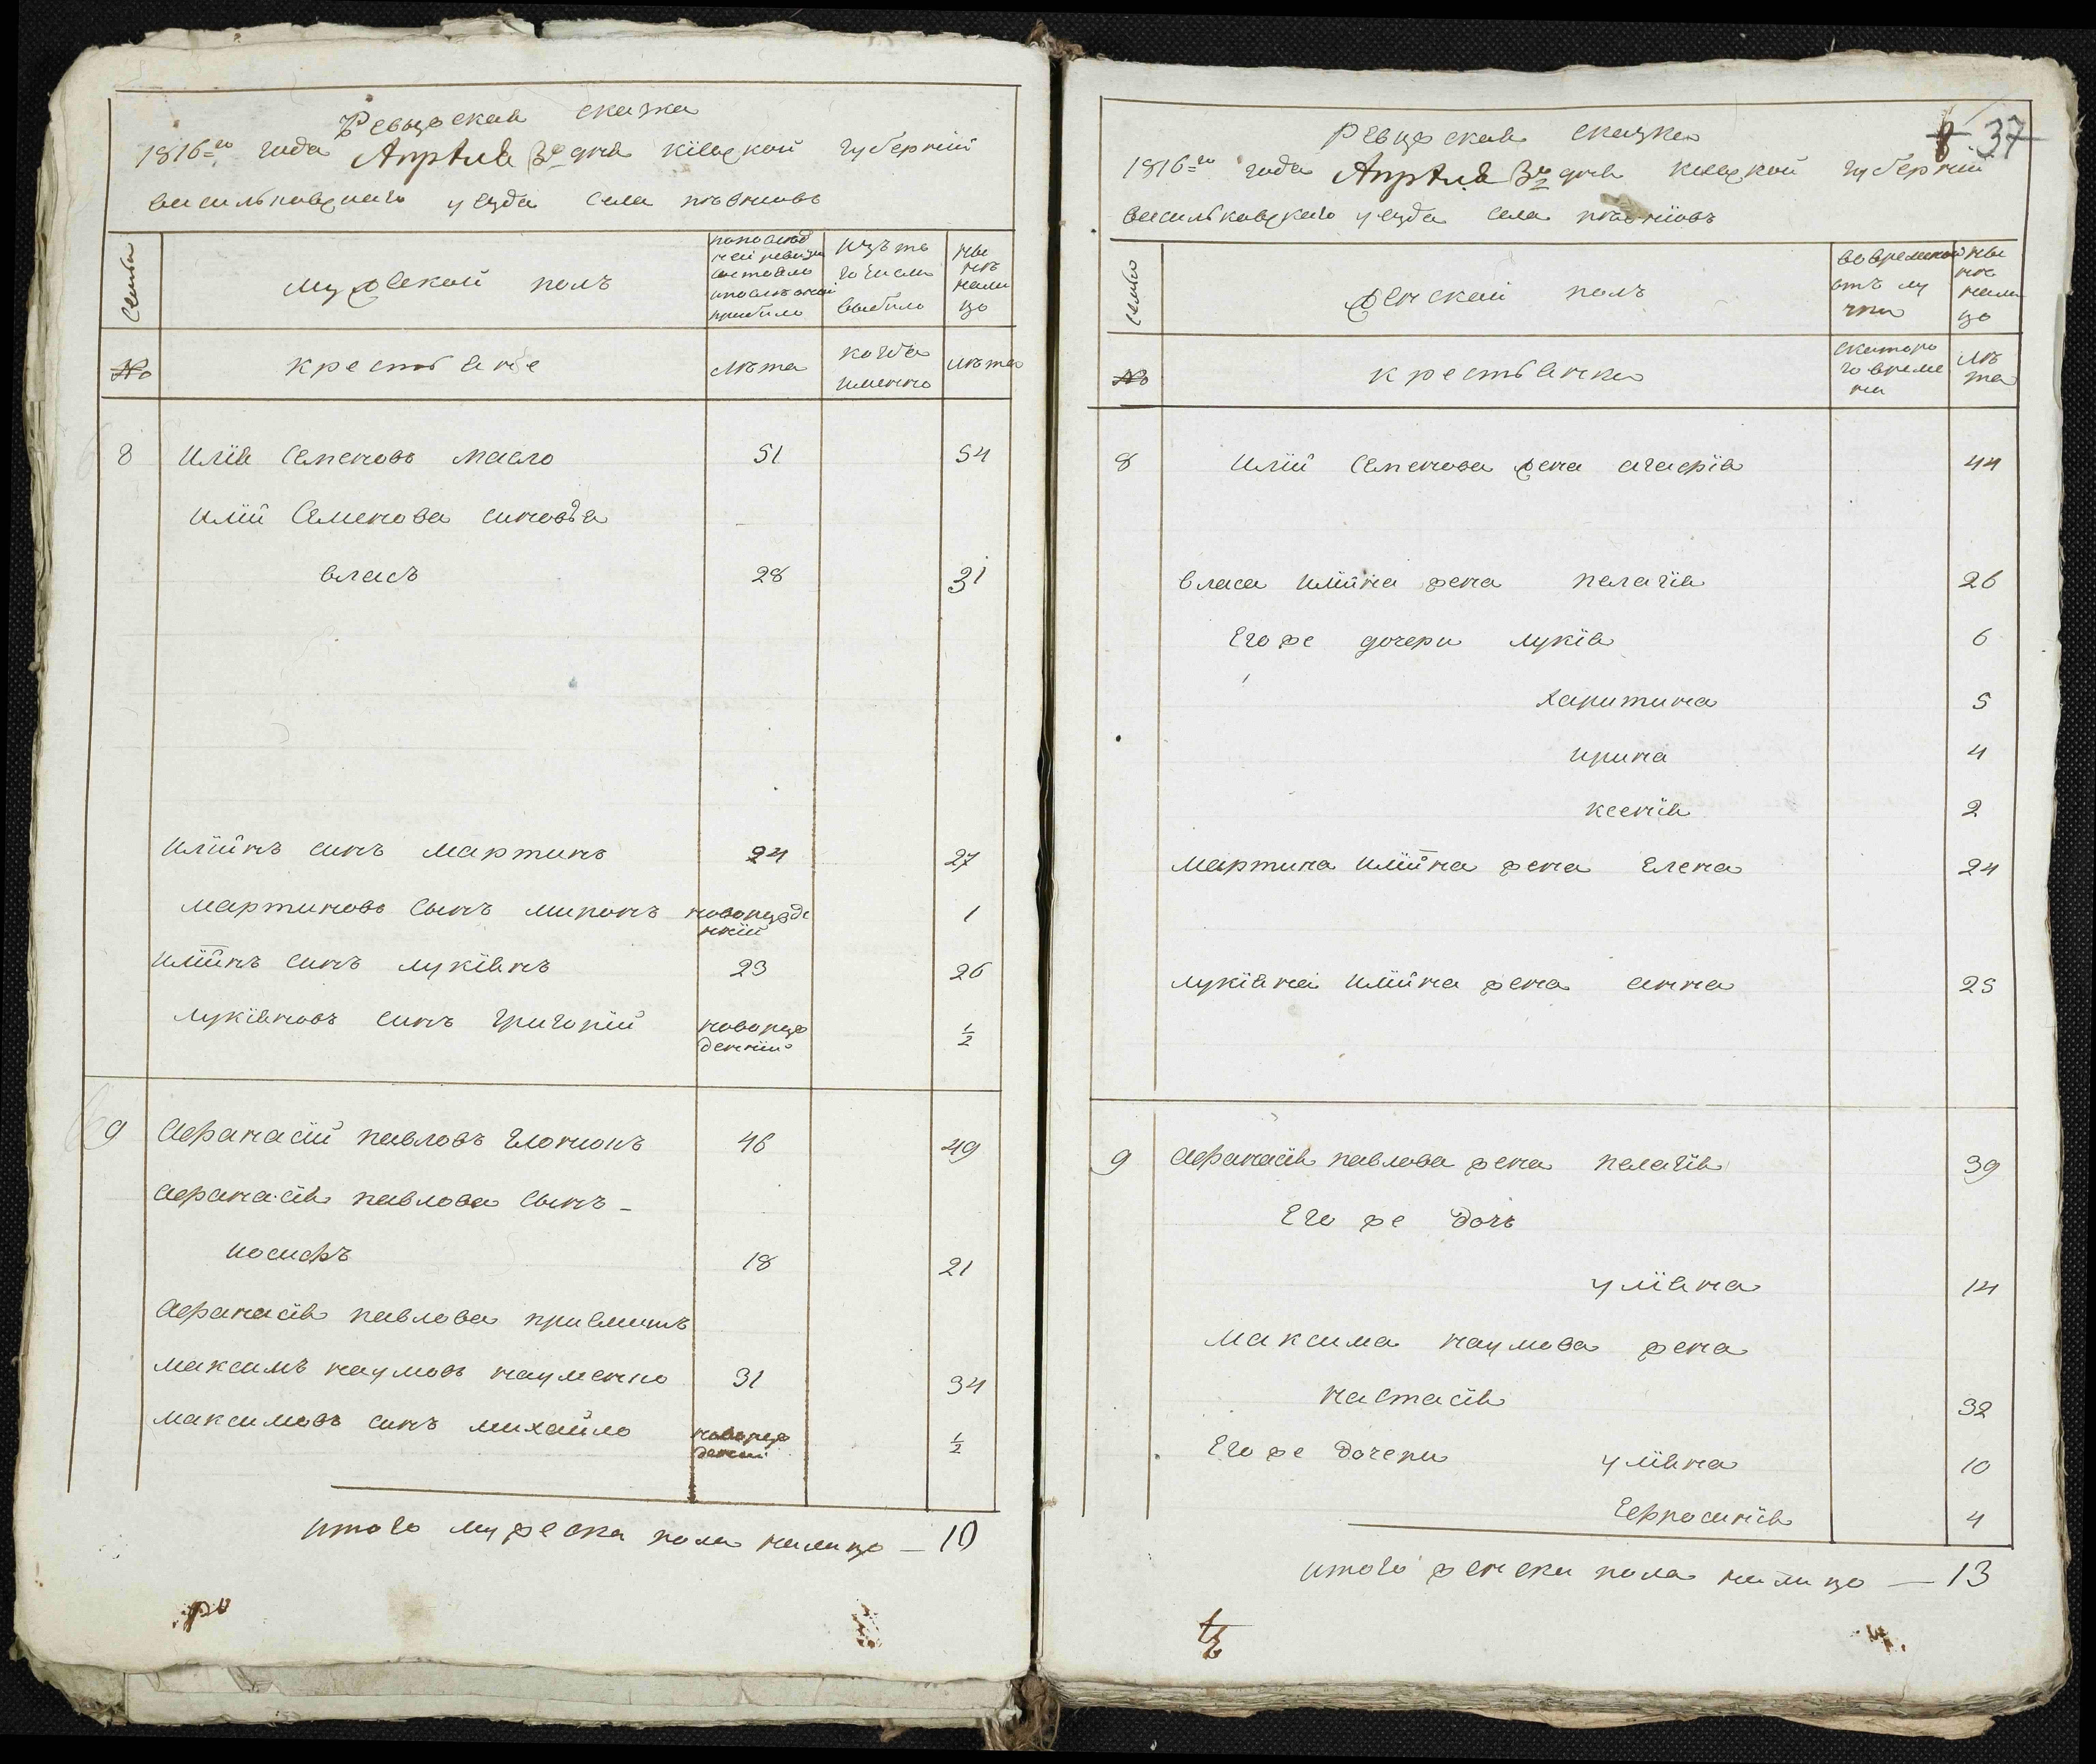 Ревизская сказка
1816=го года Апреля 3го дня кіевской губерніи
васильковскаго уезда села
Семьи
мужеской полъ
попослед
ней ревизіи
состояло
ипослеоной
прибыло
Изъ то
го числа
выбыло
ны
не
нали
цо
№
крестьяне
лета
когда
имянно
лета
8 Илія Семеновъ масло 51 54
Иліи Семенова синовья
власъ 28 31
Иліинъ синъ мартинъ 24 27
мартиновъ сынъ миронъ новорожде
нній 1
Иліинъ синъ лукіянъ 23 26
лукіяновъ синъ григорій новорож
денній ½
9 Афанасій павловъ 46 49
Афанасія павлова сынъ -
иосифъ 18 21
Афанасія павлова приемишъ
максимъ наумовъ науменко 31 34
максимовъ синъ михайло новорож
денній ½
итого мужеска пола налицо — 10
37
Ревизская сказка
1816=го года Апреля 3го дня киевской губерніи
васильковскаго уезда села
Семьи
женскай полъ
вовременной
отлу
чки
ны
не
нали
цо
№
крестьянки
скоторо
го време
ни
ле
та
8 Иліи Семенова жена агафія 44
власа Иліина жена пелагія 26
Его же дочери лукія 6
харитина 5
ирина 4
ксенія 2
мартина Иліина жена Елена 24
лукіяна Иліина жена анна 25
9 Афанасія павлова жена пелагія 39
Его же дочь
уліяна 14
максима наумова жена
настасія 32
Его же дочери уліяна 10
Ефросинія 4
итого женска пола налицо — 13